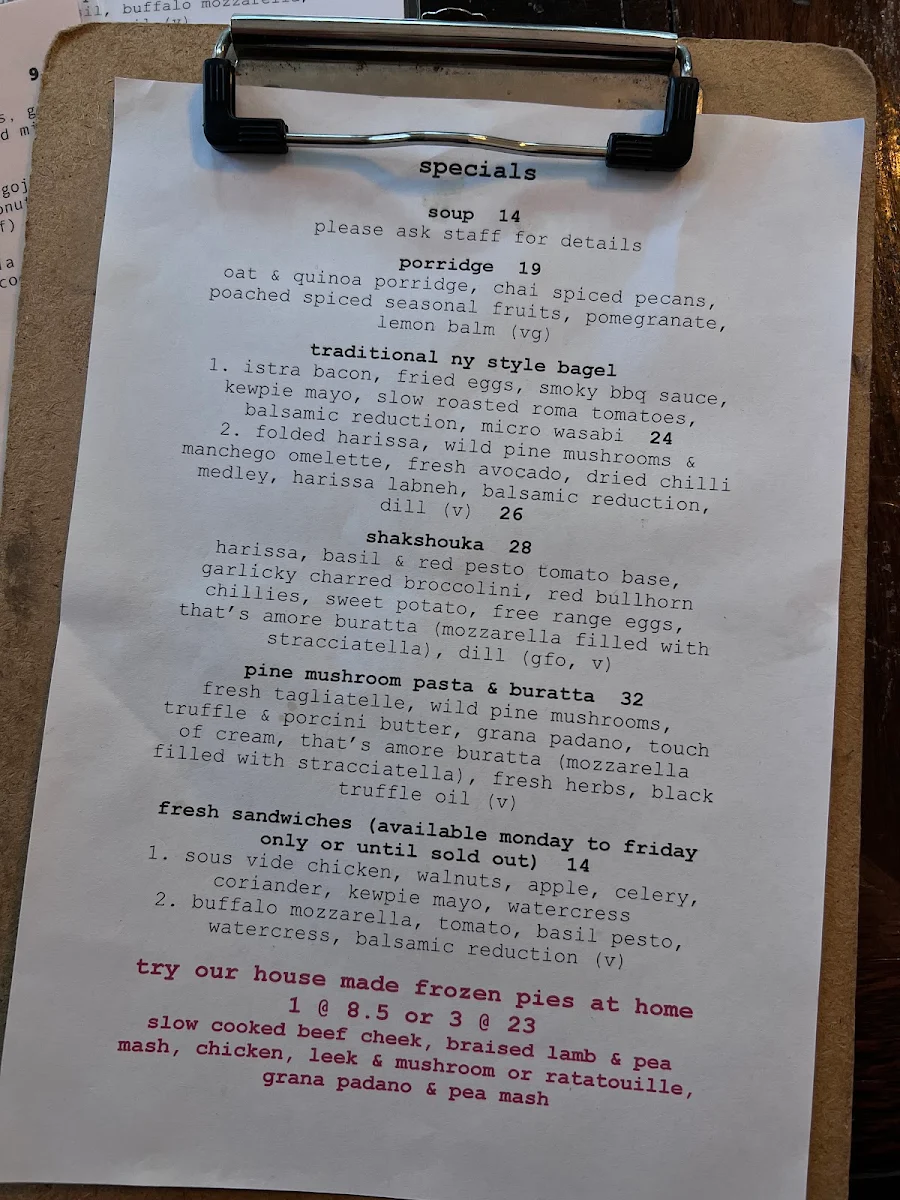 il, buffalo mozzarella,
(v)
9
s, g
d mi
goj
onut
f)
la
co
specials
soup 14
please ask staff for details
porridge 19
oat & quinoa porridge, chai spiced pecans,
poached spiced seasonal fruits, pomegranate,
lemon balm (vg)
traditional ny style bagel
1. istra bacon, fried eggs, smoky bbq sauce,
kewpie mayo, slow roasted roma tomatoes,
balsamic reduction, micro wasabi 24
2. folded harissa, wild pine mushrooms &
manchego omelette, fresh avocado, dried chilli
medley, harissa labneh, balsamic reduction,
dill (v) 26
shakshouka 28
harissa, basil & red pesto tomato base,
garlicky charred broccolini, red bullhorn
chillies, sweet potato, free range eggs,
that's amore buratta (mozzarella filled with
stracciatella), dill (gfo, v)
pine mushroom pasta & buratta 32
fresh tagliatelle, wild pine mushrooms,
truffle & porcini butter, grana padano, touch
of cream, that's amore buratta (mozzarella
filled with stracciatella), fresh herbs, black
truffle oil (v)
fresh sandwiches (available monday to friday
only or until sold out) 14
1. sous vide chicken, walnuts, apple, celery,
coriander, kewpie mayo, watercress
2. buffalo mozzarella, tomato, basil pesto,
watercress, balsamic reduction (v)
try our house made frozen pies at home
1 @ 8.5 or 3 @ 23
slow cooked beef cheek, braised lamb & pea
mash, chicken, leek & mushroom or ratatouille,
grana padano & pea mash